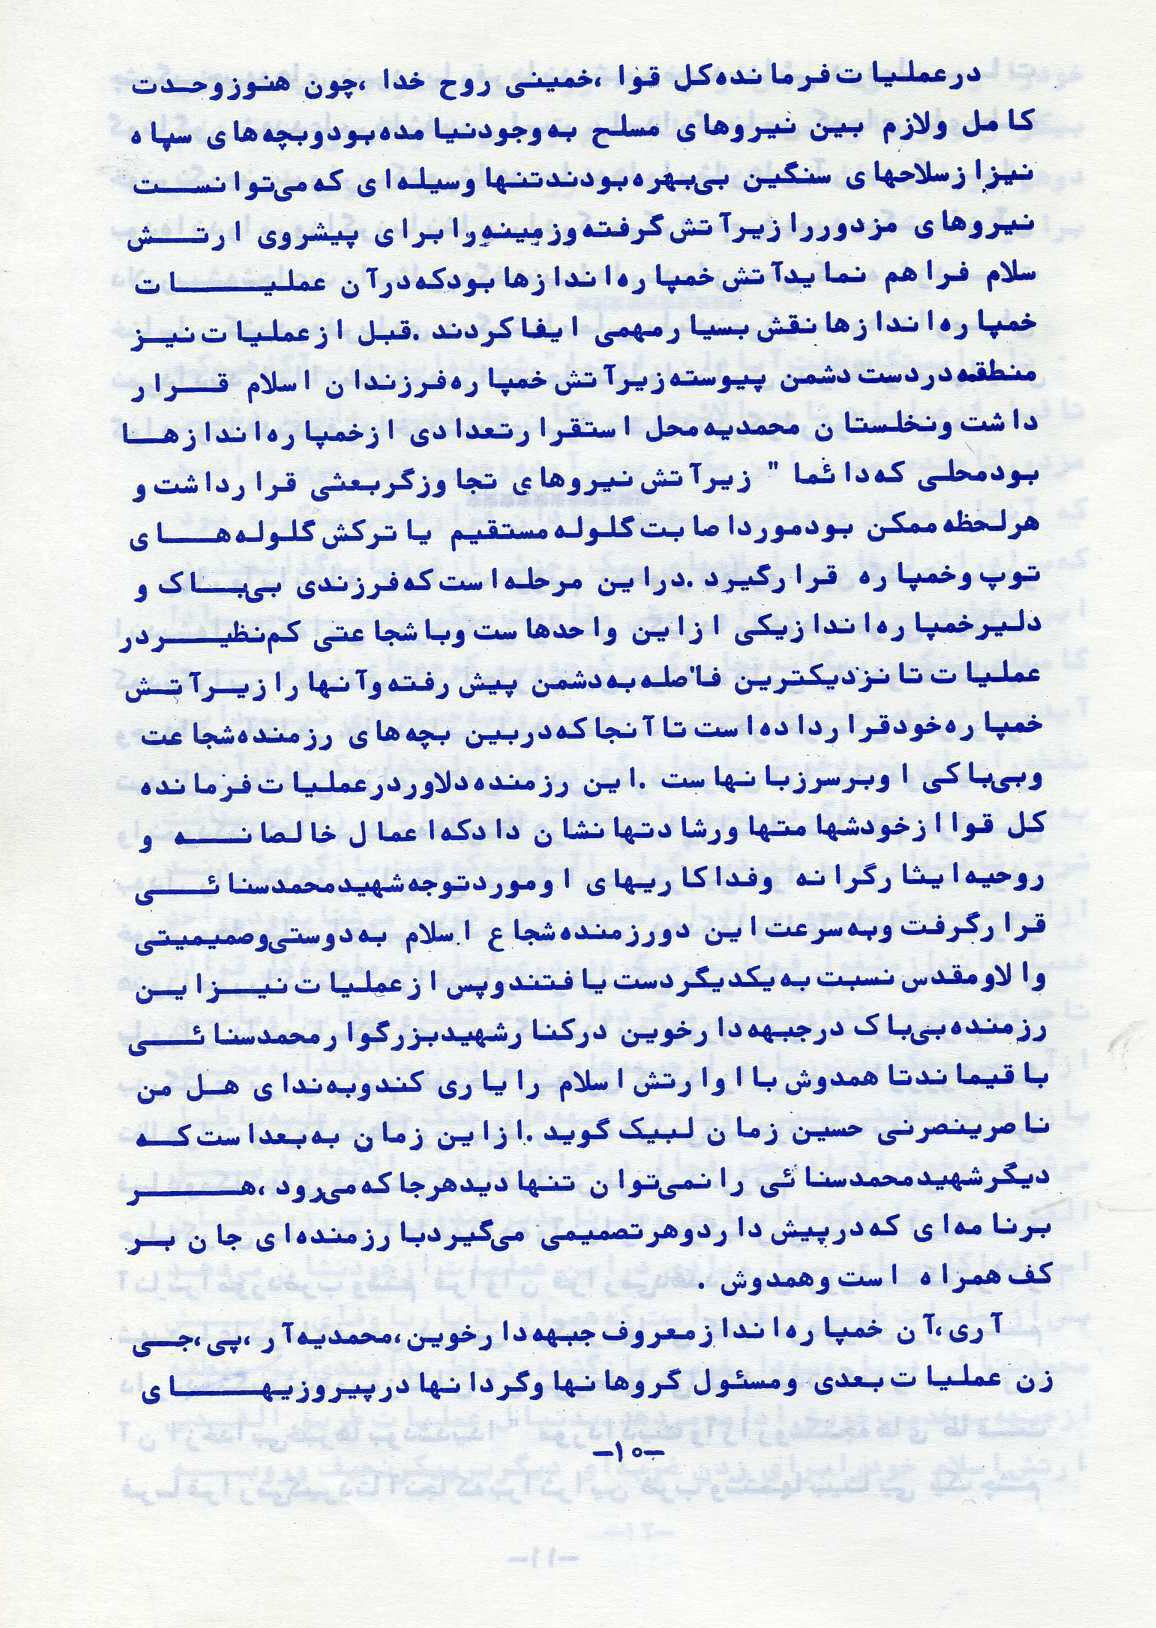 درعملیات فرمانده کل قوا ،خمینی روح خدا ،چون هنوز وحدت
کامل ولازم بین نیروهای مسلح به وجود نیامده بود و بچه های سپاه
نیز از سلاحهای سنگین بی‌بهره بودند تنها وسیله‌ای که می‌توانست
نیروهای مزدور را زیر آتش گرفته و زمینه را برای پیشروی ارتش
سلام فراهم نماید آتش خمپاره‌اندازها بود که در آن عملیات
خمپاره‌اندازها نقش بسیار مهمی ایفا کردند .قبل از عملیات نیز
منطقه در دست دشمن پیوسته زیر آتش خمپاره فرزندان اسلام قرار
داشت و نخلستان محمدیه محل استقرار تعدادی از خمپاره‌اندازها
بود محلی که دائما " زیر آتش نیروهای تجاوزگر بعثی قرار داشت و
هر لحظه ممکن بود مورد اصابت گلوله مستقیم یا ترکش گلوله‌های
توپ و خمپاره قرار گیرد .در این مرحله است که فرزندی بی‌باک و
دلیر خمپاره‌انداز یکی از این واحدهاست و با شجاعتی کم‌نظیر در
عملیات تا نزدیکترین فاصله به دشمن پیش رفته و آنها را زیر آتش
خمپاره خود قرار داده است تا آنجا که در بین بچه‌های رزمنده شجاعت
و بی‌باکی او بر سر زبانهاست .این رزمنده دلاور در عملیات فرمانده
کل قوا از خود شهامتها و رشادتها نشان داد که اعمال خالصانه و
روحیه ایثارگرانه و فداکاریهای او مورد توجه شهید محمد سنائی
قرار گرفت و به سرعت این دو رزمنده شجاع اسلام به دوستی و صمیمیتی
والا و مقدس نسبت به یکدیگر دست یافتند و پس از عملیات نیز این
رزمنده بی‌باک در جبهه دارخوین در کنار شهید بزرگوار محمد سنائی
باقیماند تا همدوش با او ارتش اسلام را یاری کند و به ندای هل من
ناصر ینصرنی حسین زمان لبیک گوید .از این زمان به بعد است که
دیگر شهید محمد سنائی را نمی‌توان تنها دید هر جا که می‌رود ،هر
برنامه‌ای که در پیش دارد و هر تصمیمی می‌گیرد با رزمنده‌ای جان بر
کف همراه است و همدوش .
آری،آن خمپاره‌انداز معروف جبهه دارخوین،محمدیه آر ،پی،جی
زن عملیات بعدی و مسئول گروهانها و گردانها در پیروزیهای
-۱۰-